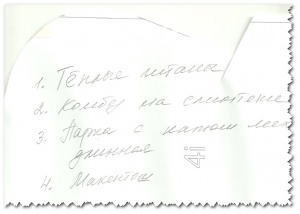 1. Тёплые штаны
2. Комбез на синтепоне
3. Парка с
длинная
4. Макентош
4i